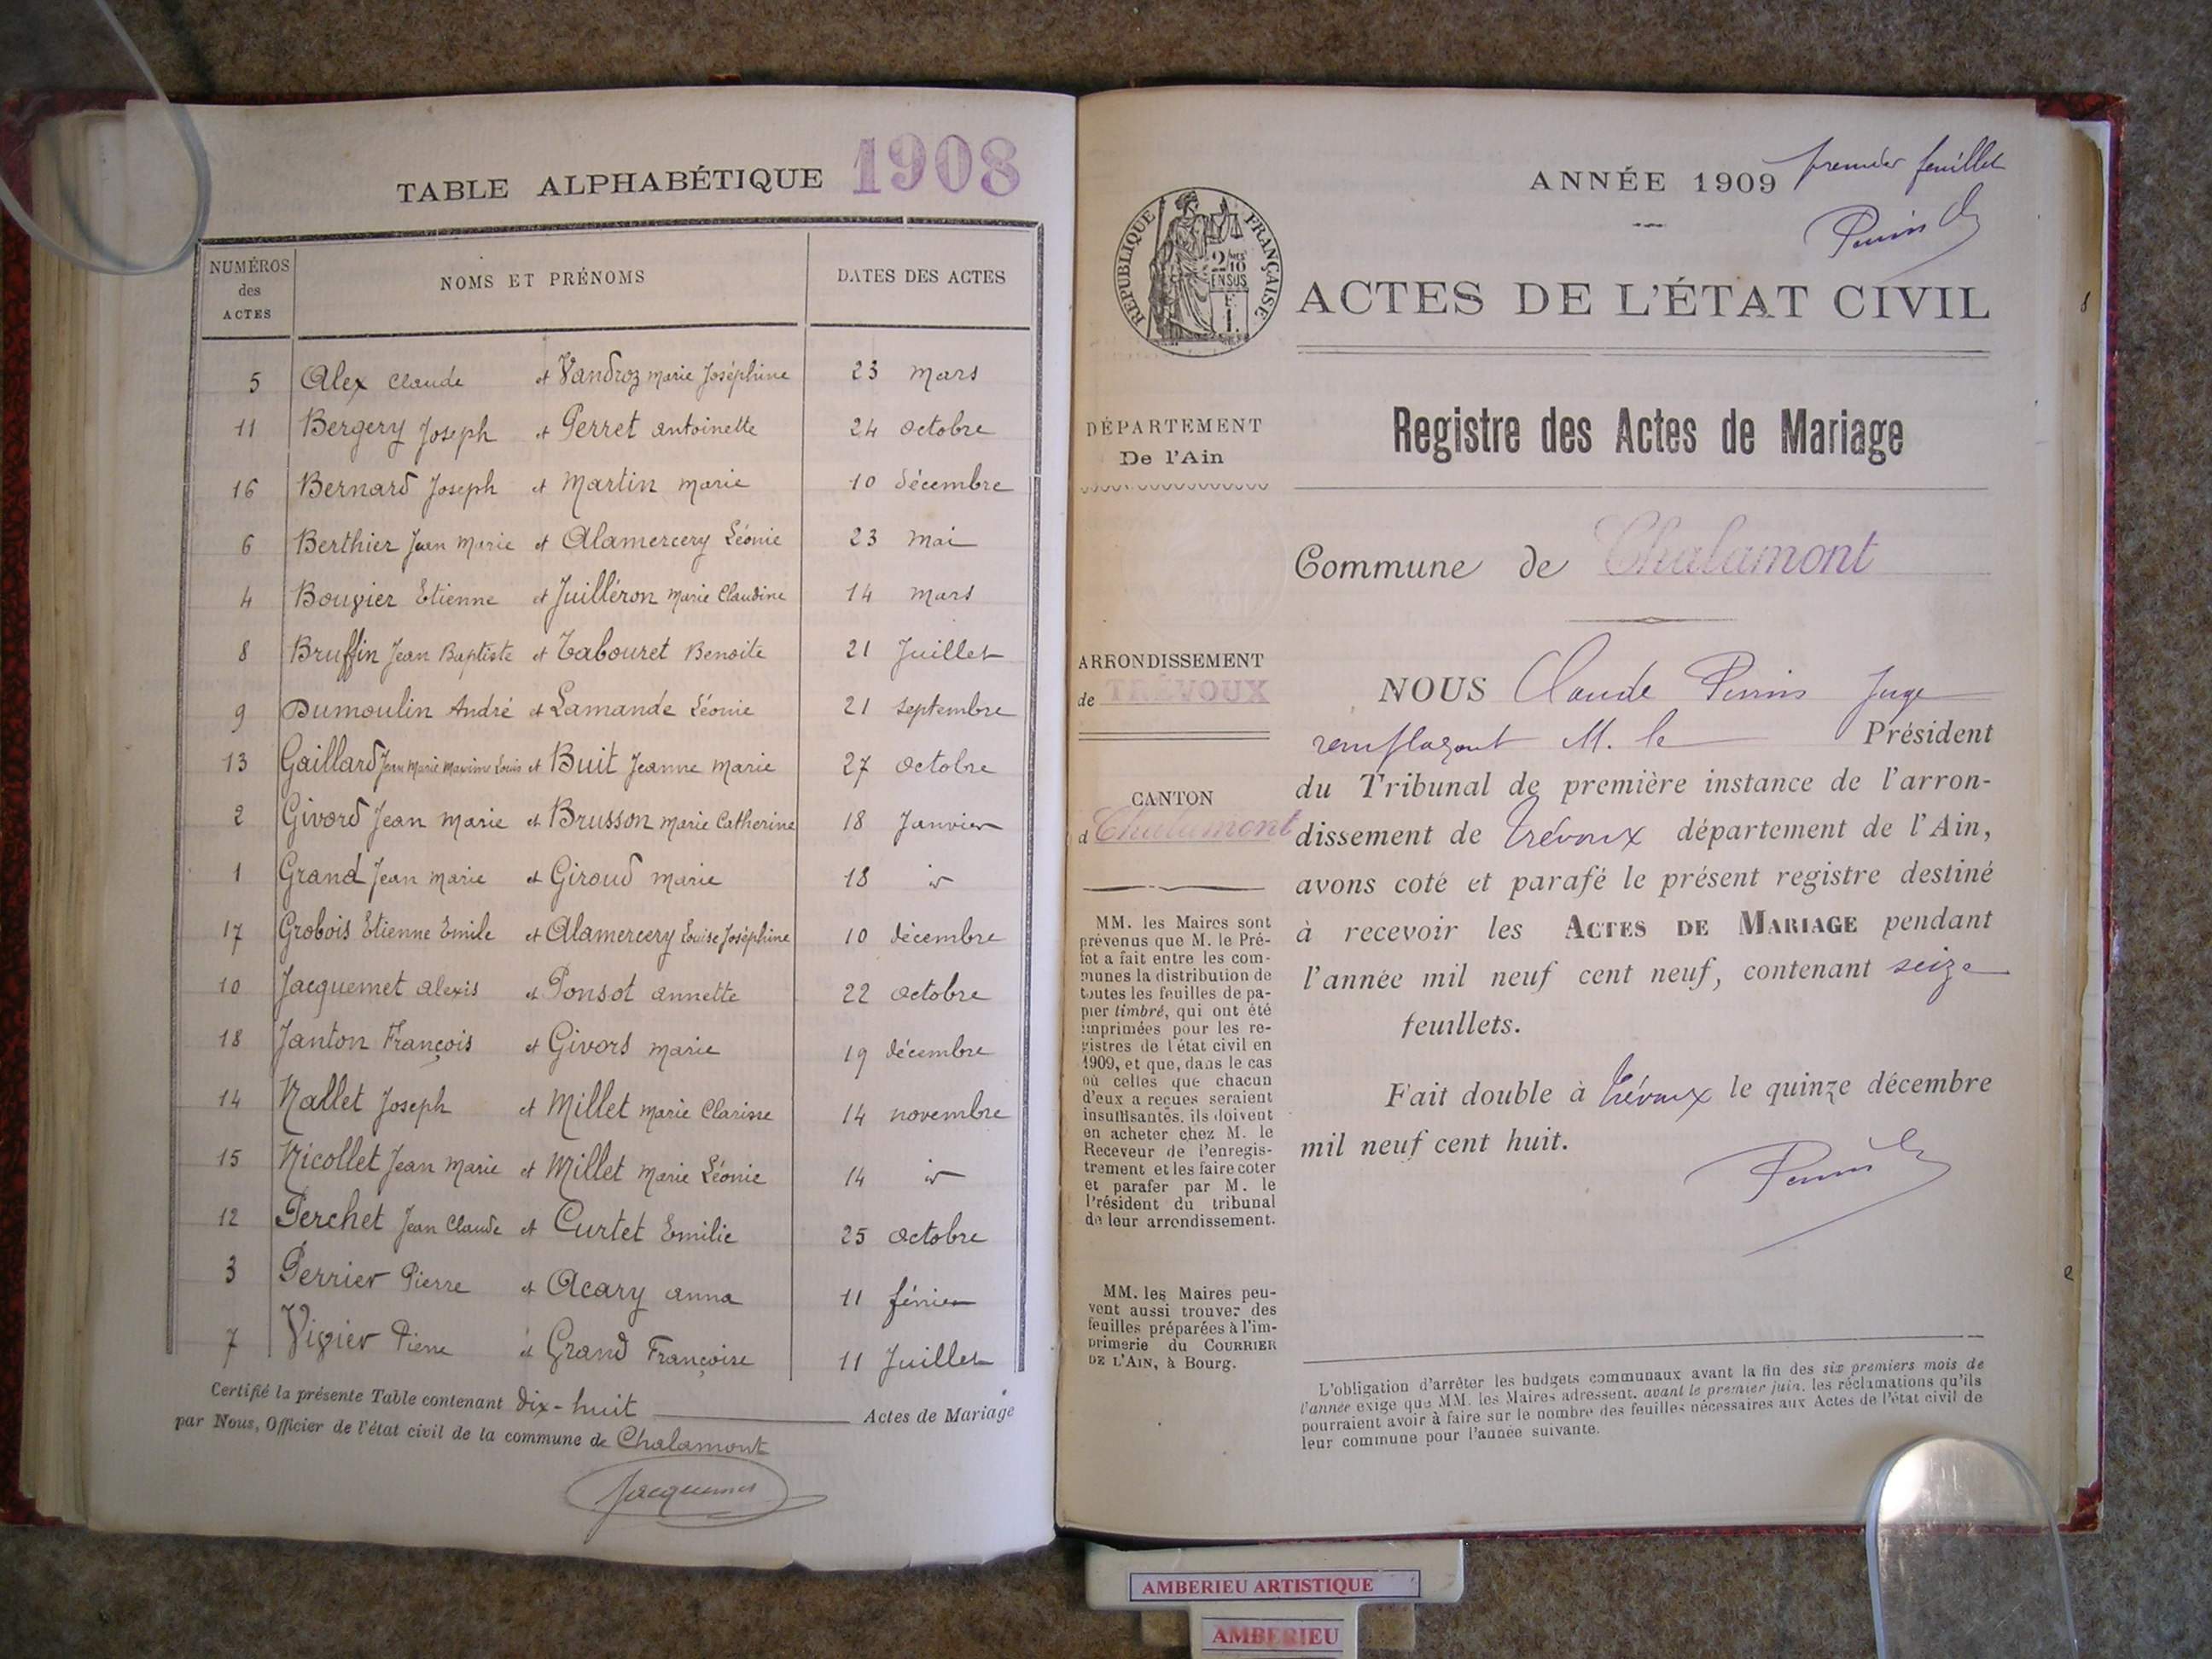 TABLE ALPHABÉTIQUE 1908
NUMÉROS
des
ACTES
NOMS ET PRÉNOMS
DATES DES ACTES
5 Alex Claude et Vandroz Marie Joséphine 23 Mars
11 Bergery Joseph et Perret Antoinette 24 Octobre
16 Bernard Joseph et Martin Marie 10 décembre
6 Berthier Jean Marie et Alamercery Léonie 23 Mai
4 Bouvier Etienne et Juilléron Marie Claudine 14 Mars
8 Bruffin Jean Baptiste et Tabouret Benoite 21 Juillet
9 Dumoulin André et Lamande Léonie 21 Septembre
13 Gaillard Jean Marie Maxime Louis et Buit Jeanne Marie 27 Octobre
2 Givord Jean Marie et Brusson Marie Catherine 18 Janvier
1 Grand Jean Marie et Giroud Marie 18 id
17 Grobois Etienne Emile et Alamercery Louise Joséphine 10 décembre
10 Jacquemet Alexis et Ponsot Annette 22 Octobre
18 Janton François et Givors Marie 19 décembre
14 Nallet Joseph et Millet Marie Clarisse 14 novembre
15 Nicollet Jean Marie et Millet Marie Léonie 14 id
12 Perchet Jean Claude et Curtet Emilie 25 Octobre
3 Perrier Pierre et Acary Anna 11 février
7 Vivier Pierre et Grand Françoise 11 Juillet
Certifié la présente Table contenant dix-huit Actes de Mariage
par Nous, Officier de l'état civil de la commune de Chalamont
Jacquemet
ANNÉE 1909 premier feuillet
Perrin
REPUBLIQUE FRANÇAISE
2/10
EN SUS
ACTES DE L'ÉTAT CIVIL
DÉPARTEMENT
De l'Ain
Registre des Actes de Mariage
Commune de Chalamont
ARRONDISSEMENT
de TRÉVOUX
CANTON
d Chalamont
NOUS Claude Perrin Juge
remplaçant M. le Président
du Tribunal de première instance de l'arron-
dissement de Trévoux département de l'Ain,
avons coté et parafé le présent registre destiné
à recevoir les ACTES DE MARIAGE pendant
l'année mil neuf cent neuf, contenant seize
feuillets.
Fait double à Trévoux le quinze décembre
mil neuf cent huit.
Perrin
MM. les Maires sont
prévenus que M. le Pré-
fet a fait entre les com-
munes la distribution de
toutes les feuilles de pa-
pier timbré, qui ont été
imprimées pour les re-
gistres de l'état civil en
1909, et que, dans le cas
où celles que chacun
d'eux a reçues seraient
insuffisantes, ils doivent
en acheter chez M. le
Receveur de l'enregis-
trement et les faire coter
et parafer par M. le
Président du tribunal
de leur arrondissement.
MM. les Maires peu-
vent aussi trouver des
feuilles préparées à l'im-
primerie du COURRIER
DE L'AIN, à Bourg.
L'obligation d'arrêter les budgets communaux avant la fin des six premiers mois de
l'année exige que MM. les Maires adressent, avant le premier juin, les réclamations qu'ils
pourraient avoir à faire sur le nombre des feuilles nécessaires aux Actes de l'état civil de
leur commune pour l'année suivante.
AMBERIEU ARTISTIQUE
AMBERIEU